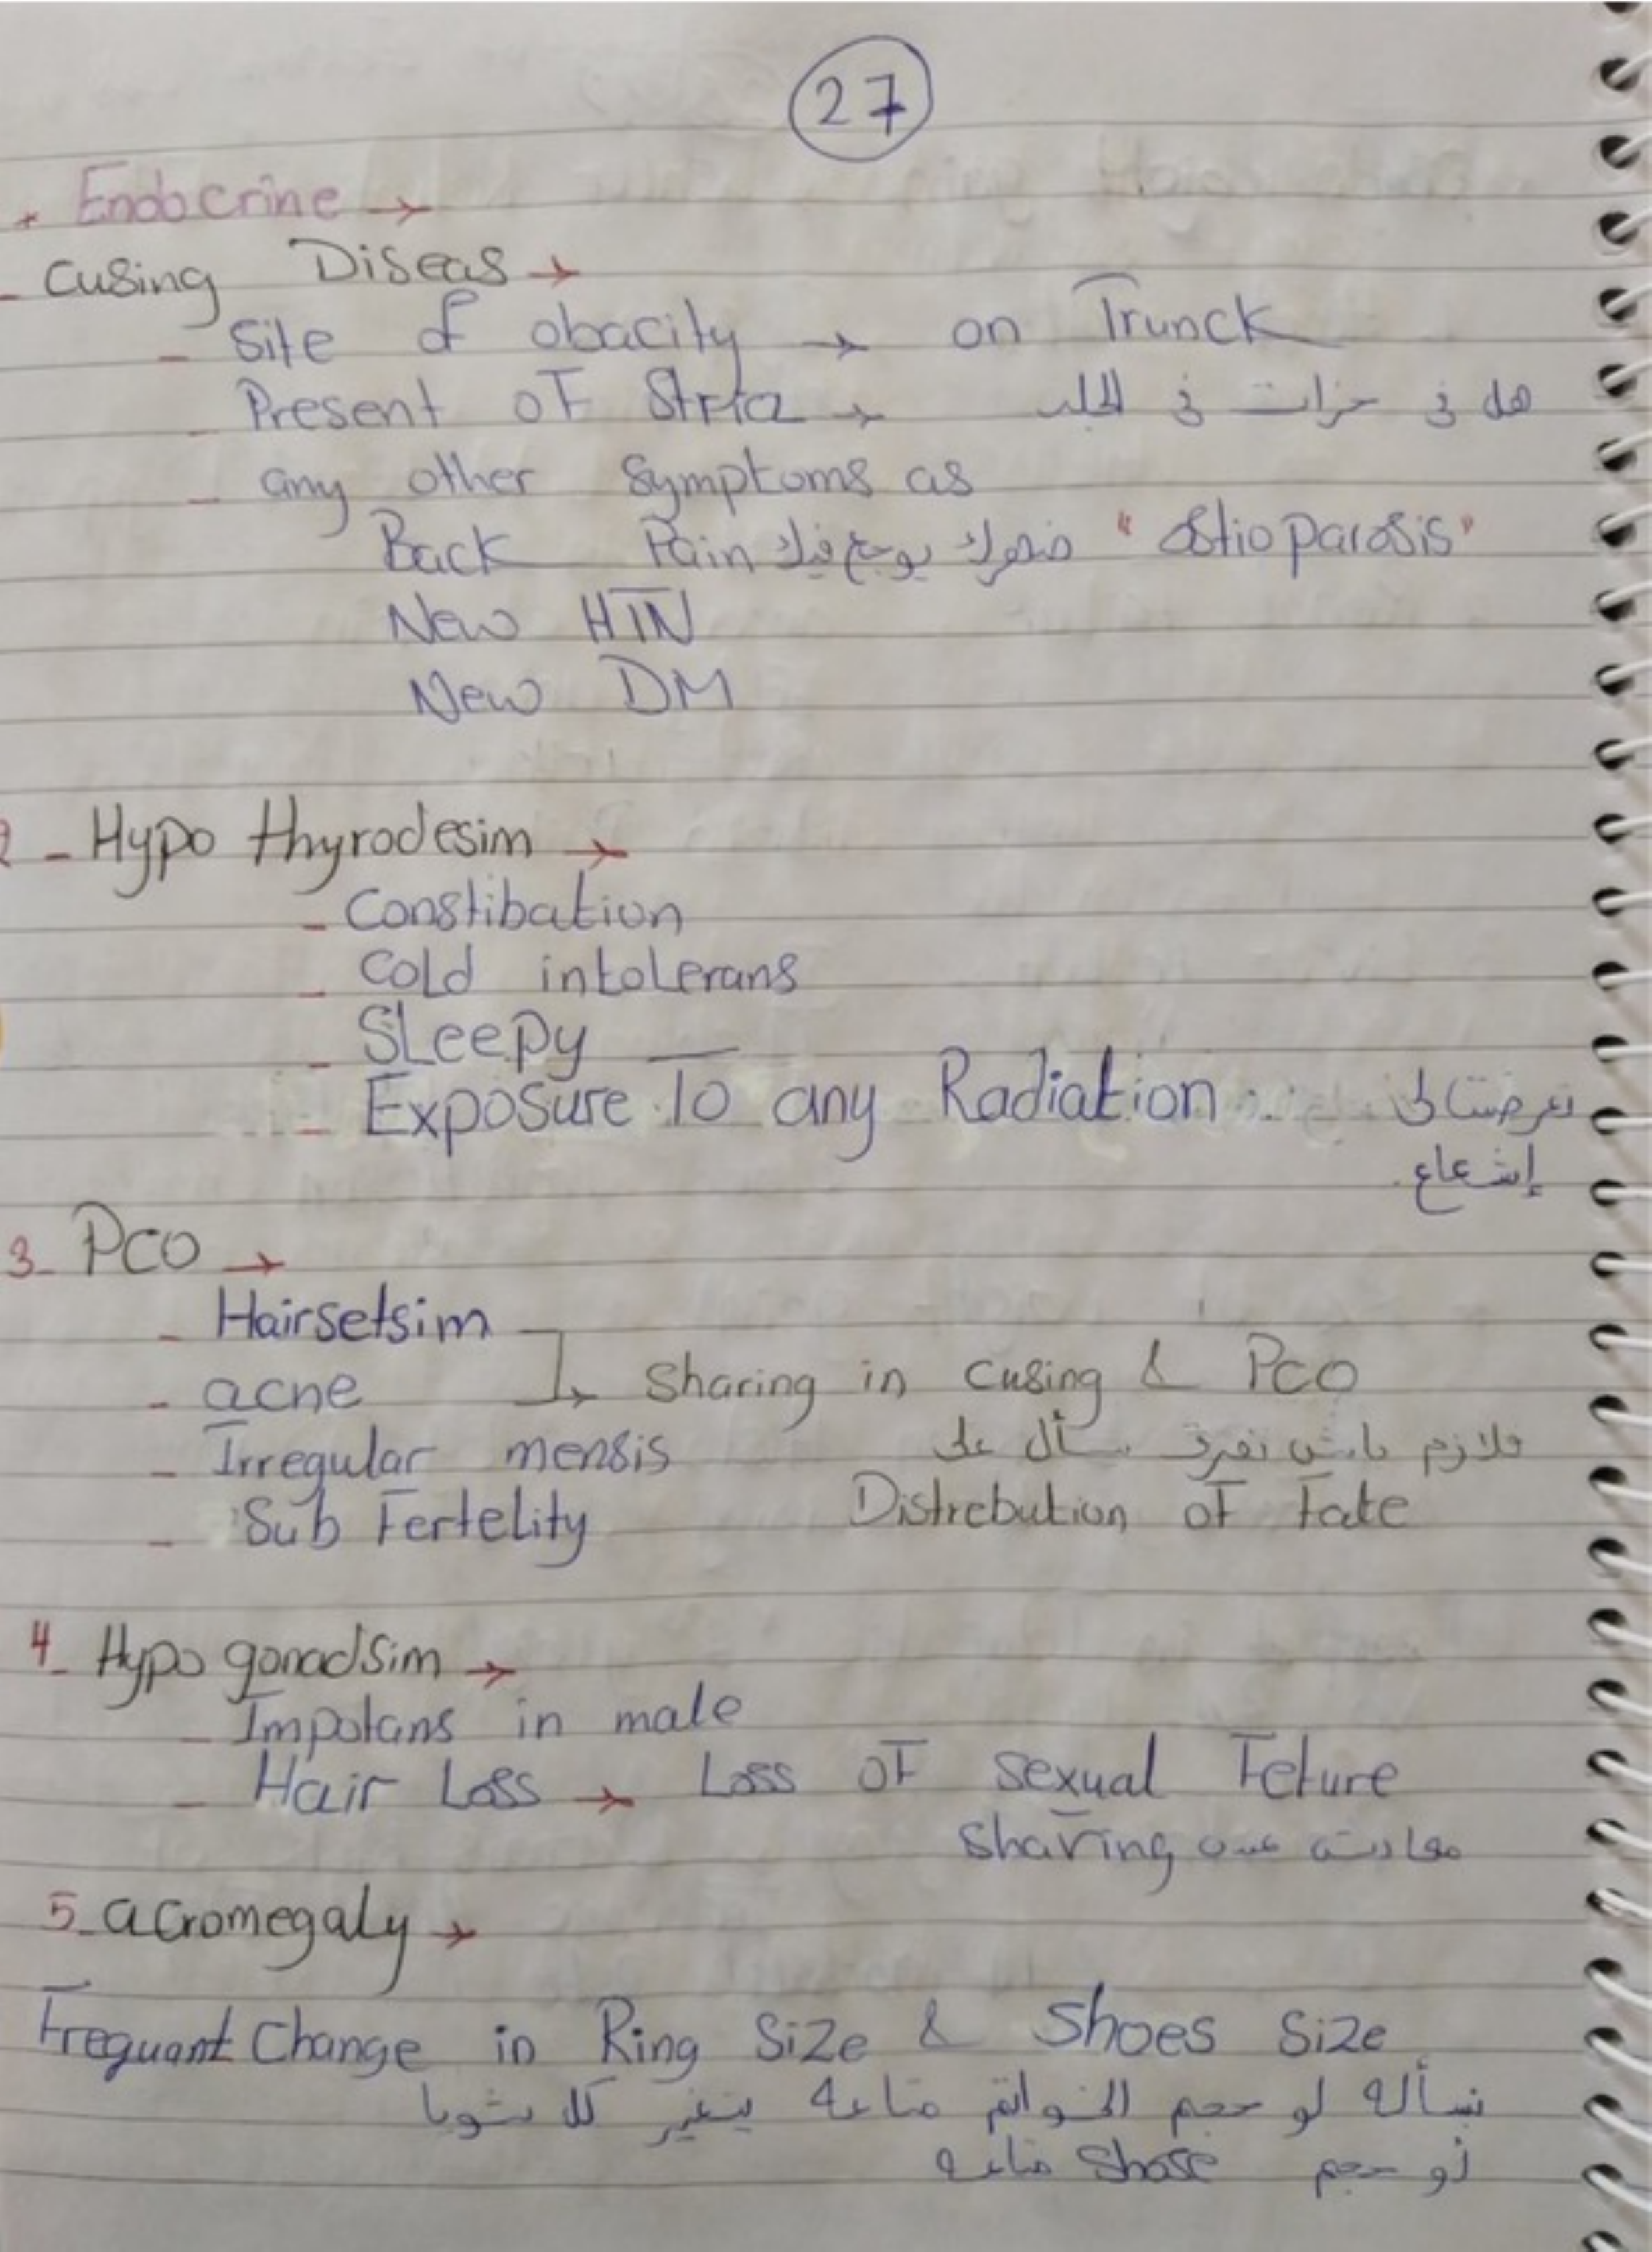 27
* Endocrine →
- Cusing Diseas →
- Site of obacity → on Trunck
- Present of Stria → هل في حزات في الجلد
- any other Symptoms as
Back Pain ضهرك يوجع فيك "Ostioparosis"
New HTN
New DM
2 - Hypo thyrodesim →
- Constibation
- Cold intolerans
- Sleepy
- Exposure To any Radiation تعرضتالى
إشعاع.
3- PCO →
- Hairsetsim
- acne → Sharing in Cusing & PCO
- Irregular mensis فلازم باش نفرق نسأل على
- Sub Fertelity Distrebution of Fate
4- Hypo gonadsim →
- Impotans in male
- Hair Loss → Loss of sexual Feture
معادش عنده Sharing
5- acromegaly →
Frequant Change in Ring Size & Shoes Size
نسأله لو حجم الخواتم متاعه يتغير كل شويا
لو حجم Shose متاعه